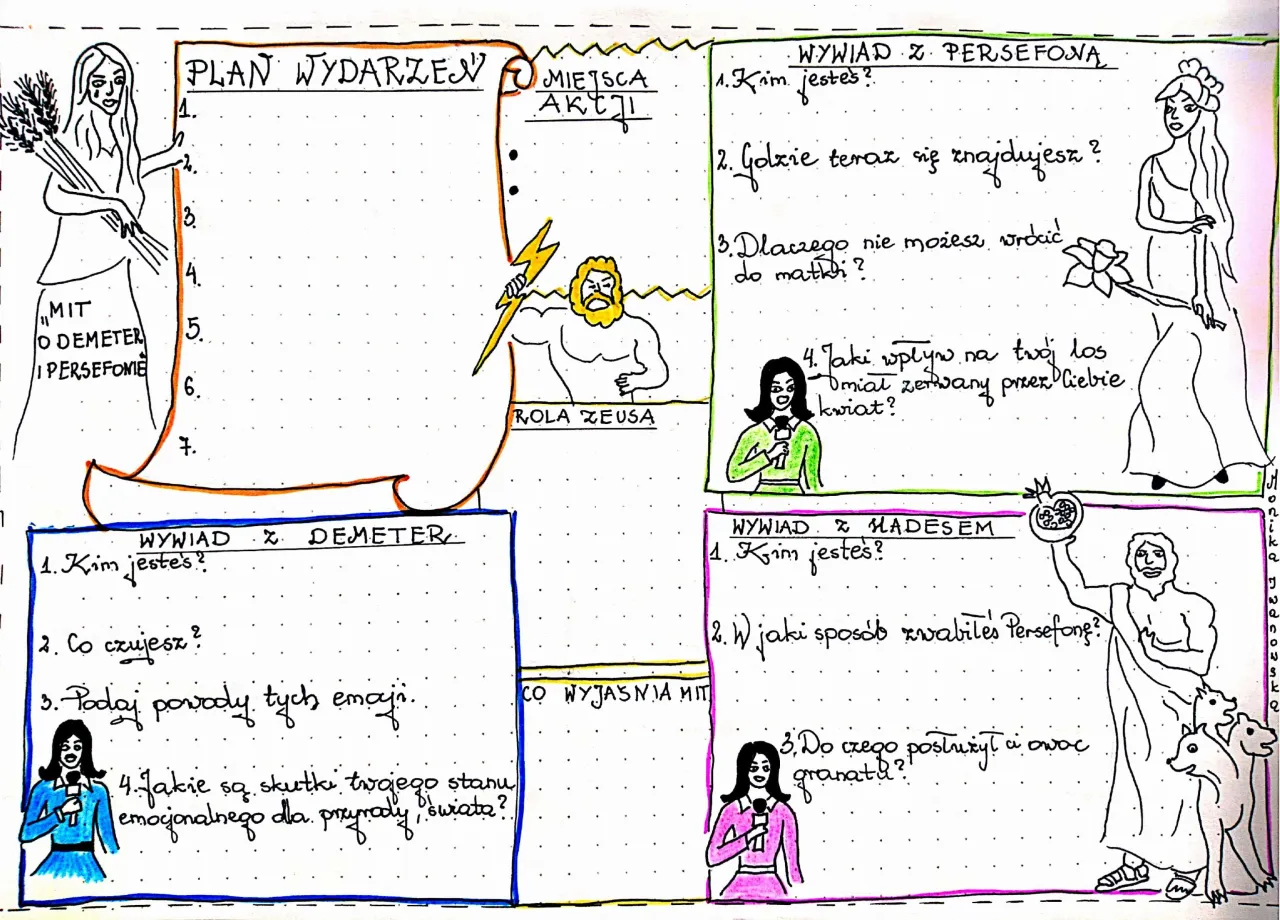 „MIT
O DEMETER
I PERSEFONIE
PLAN WYDARZEŃ
1.
2.
3.
4.
5.
6.
7.
MIEJSCA
AKCJI
•
•
ROLA ZEUSA
CO WYJAŚNIA MIT
WYWIAD Z PERSEFONĄ
1. Kim jesteś?
2. Gdzie teraz się znajdujesz?
3. Dlaczego nie możesz wrócić
do matki?
4. Jaki wpływ na twój los
miał zerwany przez Ciebie
kwiat?
WYWIAD Z DEMETER
1. Kim jesteś?
2. Co czujesz?
3. Podaj powody tych emocji.
4. Jakie są skutki twojego stanu
emocjonalnego dla przyrody, świata?
WYWIAD Z HADESEM
1. Kim jesteś?
2. W jaki sposób zwabiłeś Persefonę?
3. Do czego posłużył Ci owoc
granatu?
Monika Iwanowska